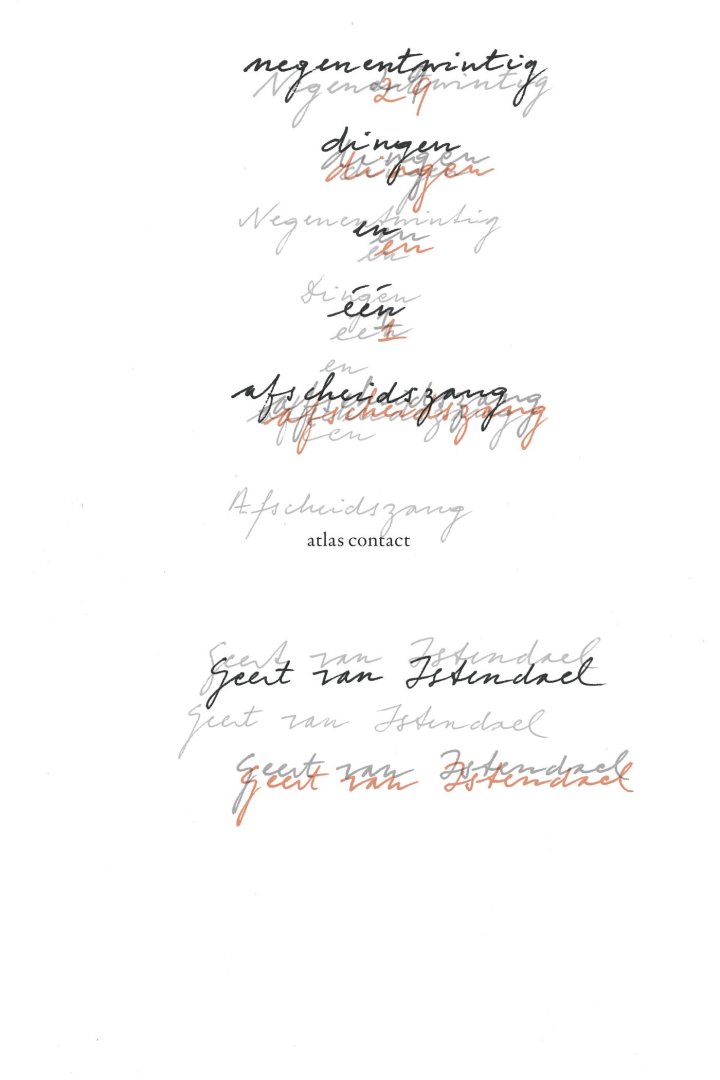 negenentwintig
Negenentwintig
29
dingen
dingen
dingen
Negenentwintig
en
en
en
en
Dingen
één
een
1
en
afscheidszang
afscheidszang
afscheidszang
een
Afscheidszang
atlas contact
Geert van Istendael
Geert van Istendael
Geert van Istendael
Geert van Istendael
Geert van Istendael